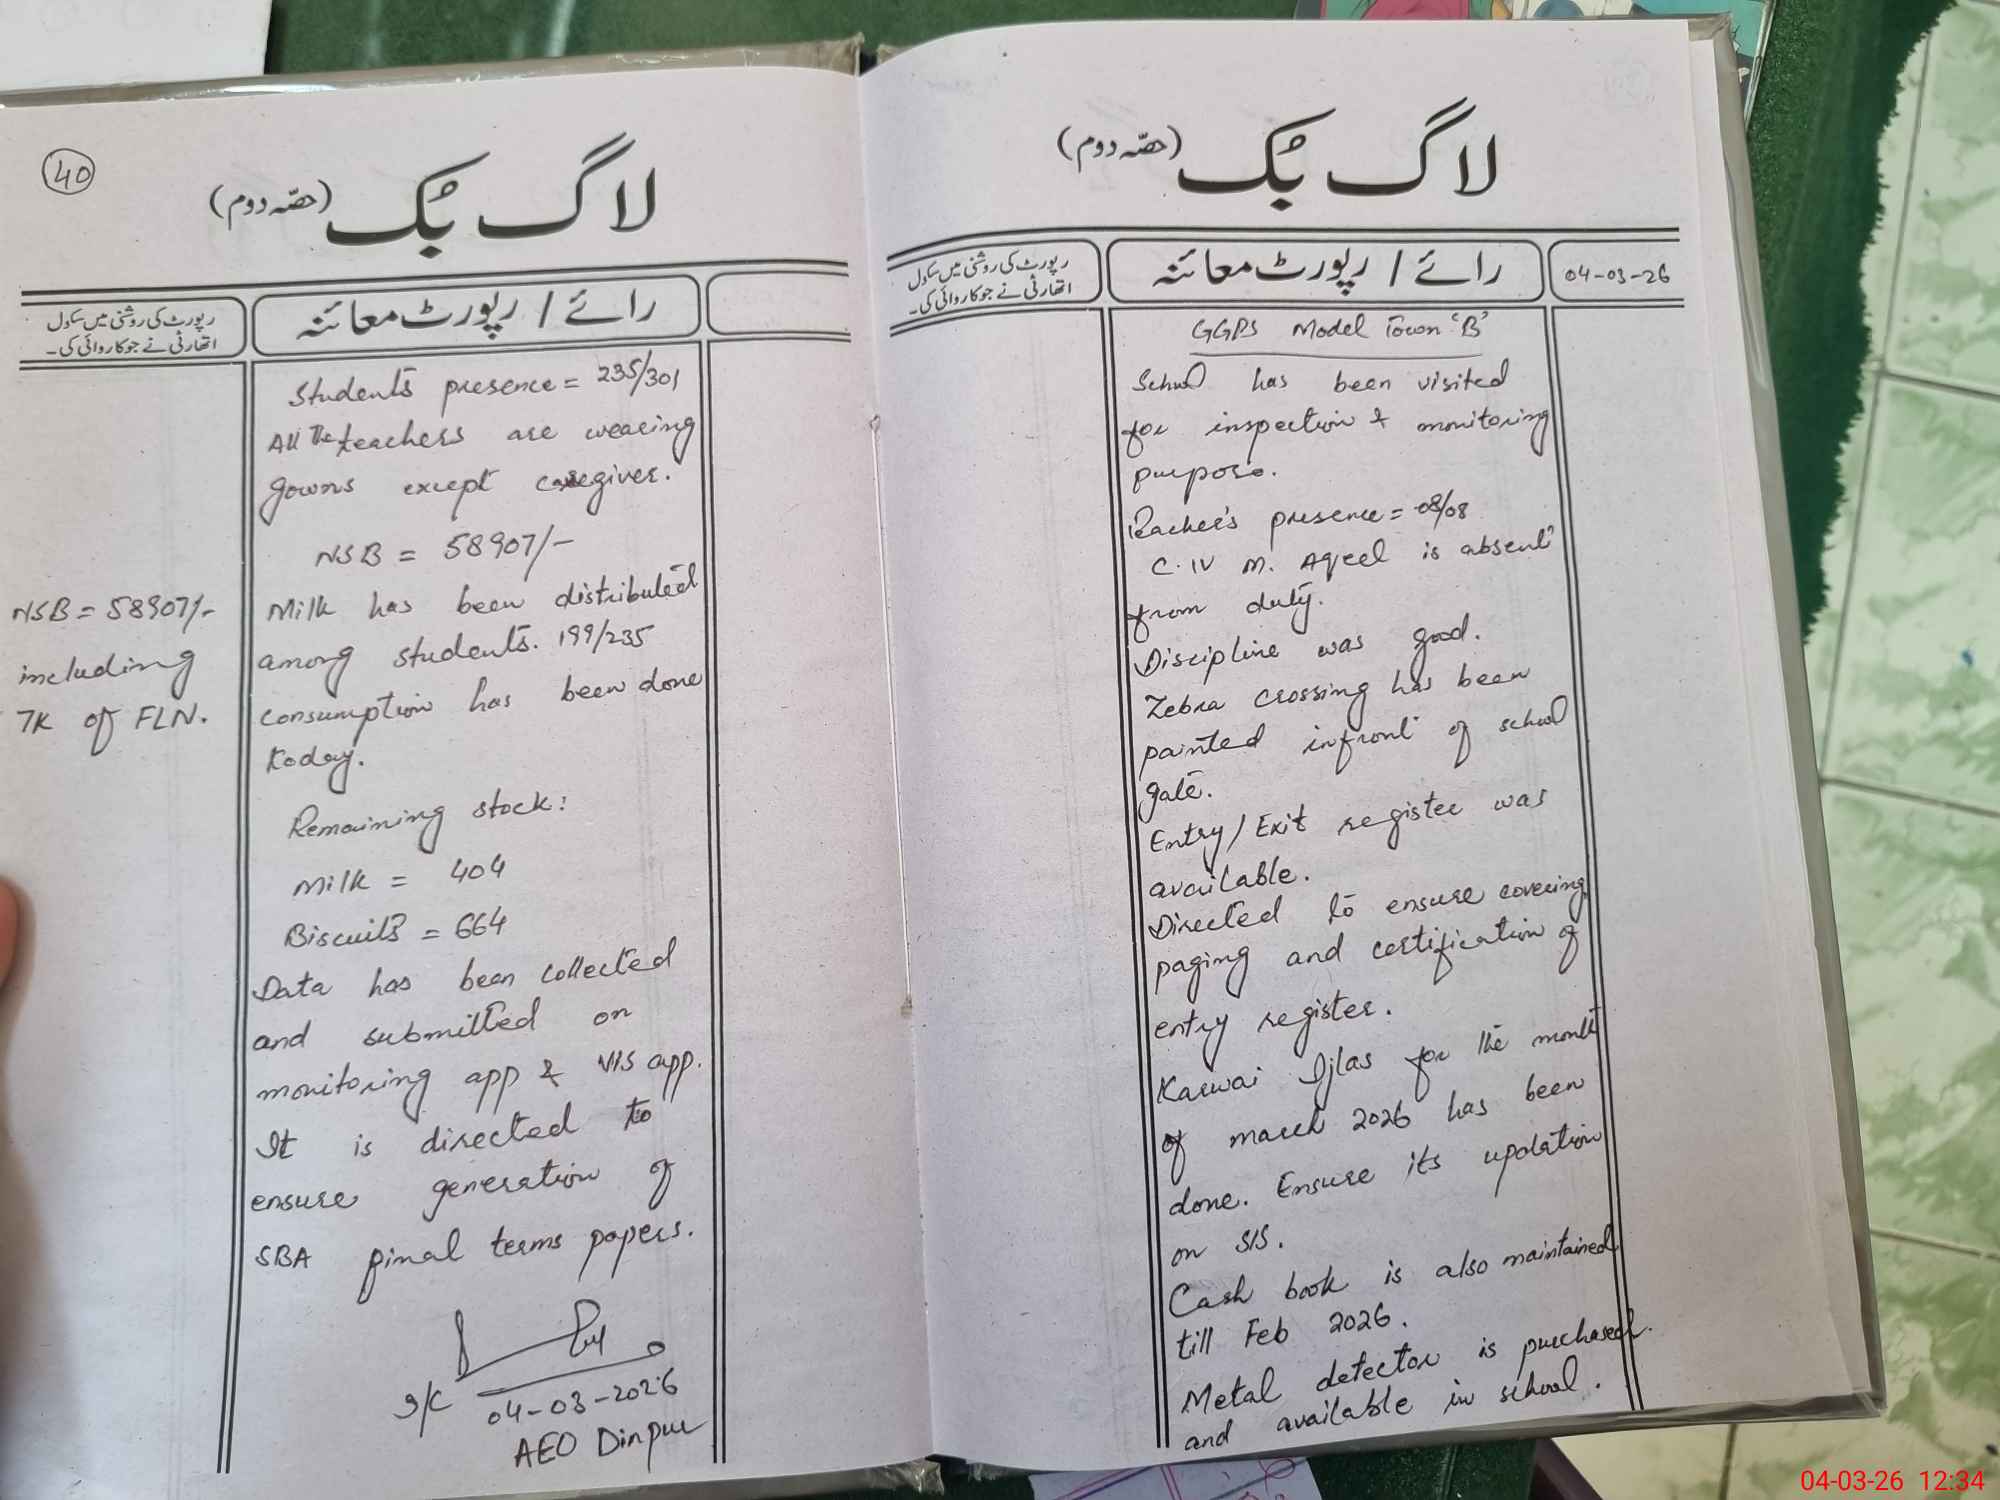 لاگ بُک (حصّہ دوم)
رپورٹ کی روشنی میں سکول
اتھارٹی نے جو کاروائی کی۔
رائے / رپورٹ معائنہ
04-03-26
GGPS Model Town 'B'
School has been visited
for inspection & monitoring
purpose.
Teacher's presence = 08/08
C.IV M. Aqeel is absent
from duty.
Discipline was good.
Zebra crossing has been
painted infront of school
gate.
Entry/Exit register was
available.
Directed to ensure covering,
paging and certification of
entry register.
Karwai Ijlas for the month
of march 2026 has been
done. Ensure its updation
on SIS.
Cash book is also maintained
till Feb 2026.
Metal detector is purchased.
and available in school.
40
لاگ بُک (حصّہ دوم)
رپورٹ کی روشنی میں سکول
اتھارٹی نے جو کاروائی کی۔
رائے / رپورٹ معائنہ
Students presence = 235/301
All The teachers are wearing
gowns except caregiver.
NSB = 58907/-
Milk has been distributed
among students. 199/235
consumption has been done
today.
Remaining stock:
Milk = 404
Biscuits = 664
Data has been collected
and submitted on
monitoring app & VIS app.
It is directed to
ensure generation of
SBA final terms papers.
NSB = 58907/-
including
7K of FLN.
04-03-2026
AEO Dinpur
04-03-26 12:34